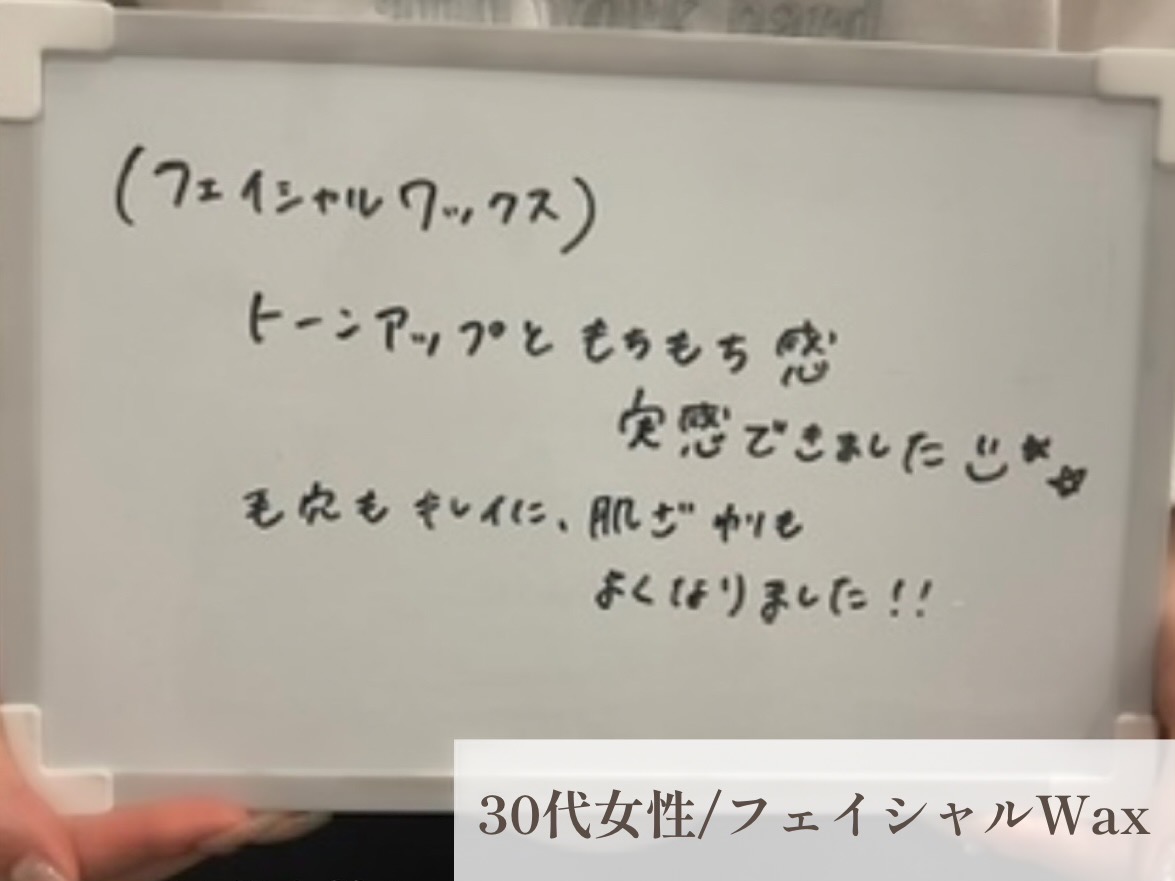 (フェイシャルワックス)
トーンアップと もちもち感
実感できました
毛穴も キレイに、肌ざわりも
よくなりました!!
30代女性/フェイシャルWax